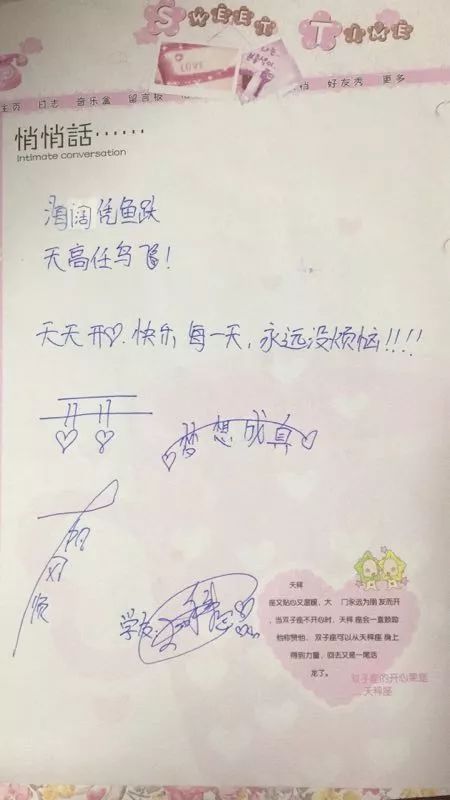 SWEET TIME
LOVE
主页 日志 音乐盒 留言板 好友秀 更多
悄悄話……
Intimate conversation
海阔凭鱼跃
天高任鸟飞!
天天开♡.快乐每一天,永远没烦恼!!!!
梦想成真
一帆风顺
学友:
天秤
座又贴心又温暖、大 门永远为朋友而开
,当双子座不开心时、天秤座会一直鼓励
他称赞他、双子座可以从天秤座身上
得到力量、回去又是一尾活
龙了。
双子座的开心果是
……天秤座